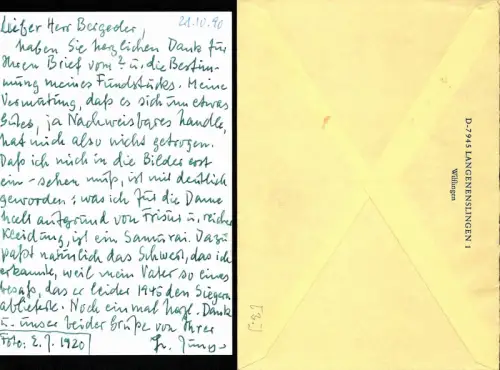 21.10.90
Lieber Herr Bergeder,
haben Sie herzlichen Dank für
Ihren Brief vom 2. u. die Bestim-
mung meines Fundstücks. Meine
Vermutung, daß es sich um etwas
Gutes, ja Nachweisbares handle,
hat mich also nicht getrogen.
Daß ich mich in die Bilder erst
ein-sehen muß, ist mir deutlich
geworden: was ich für die Dame
hielt aufgrund von Frisur u. reicher
Kleidung, ist ein Samurai. Dazu
paßt natürlich das Schwert, das ich
erkannte, weil mein Vater so eines
besaß, das er leider 1945 den Siegern
ablieferte. Noch einmal herzl. Dank
u. unser beider Grüße von Ihrer
Foto: E. J. 1920
D-7945 LANGENENSLINGEN 1
Wilflingen